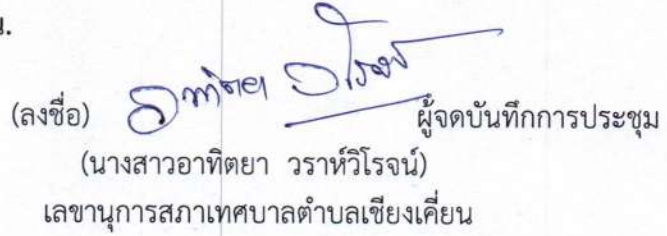 น.
(ลงชื่อ) อาทิตยา ผู้จดบันทึกการประชุม
(นางสาวอาทิตยา วราห์วิโรจน์)
เลขานุการสภาเทศบาลตำบลเชียงเคี่ยน